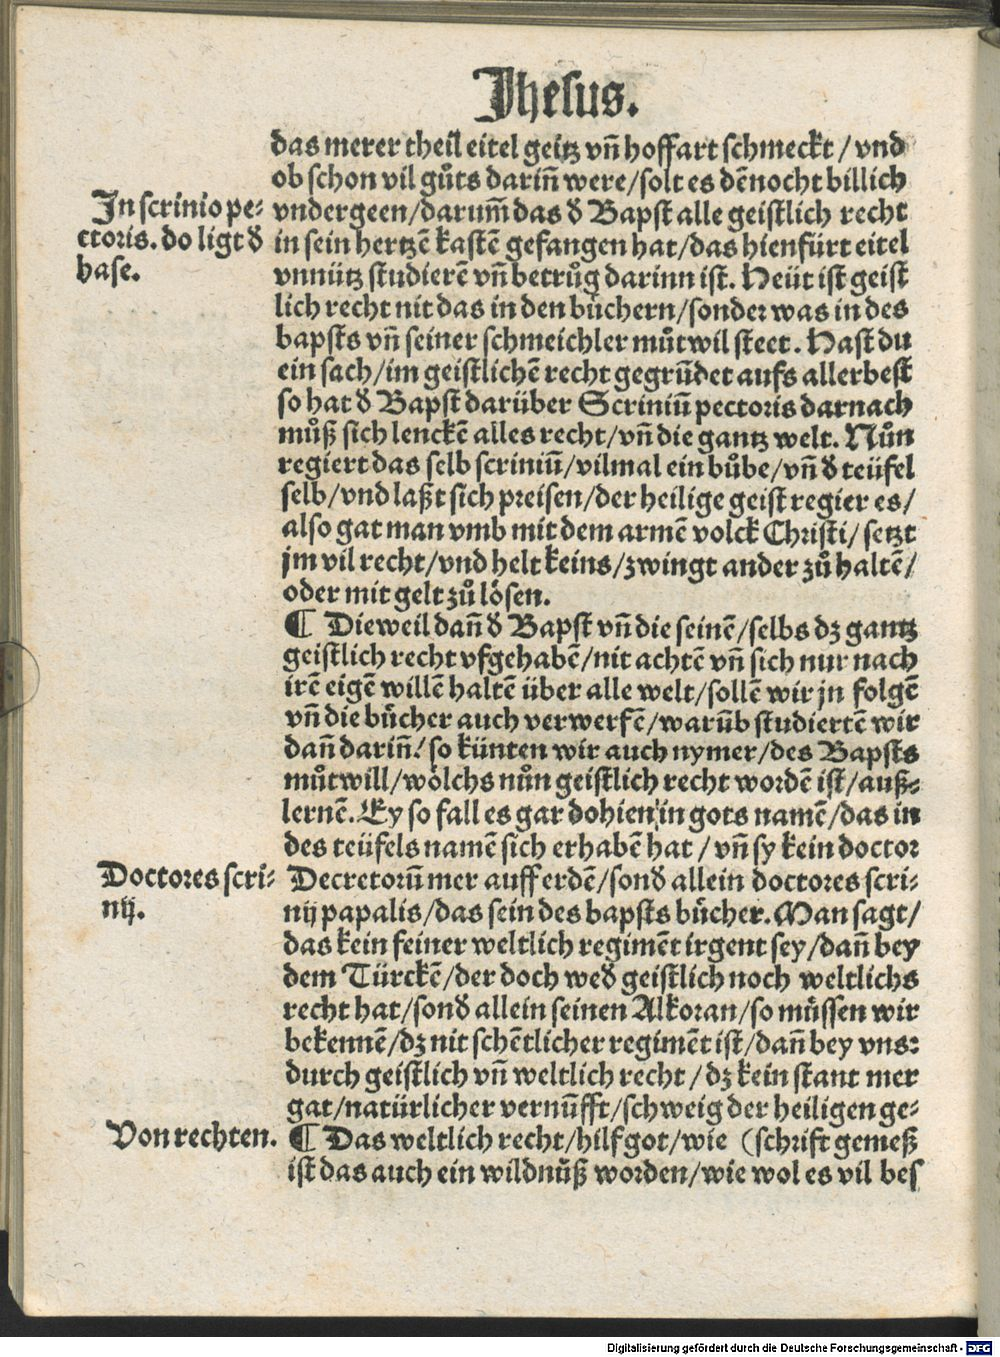 Jhesus.
das merer theil eitel geitz vn̄ hoffart schmeckt / vnd
ob schon vil gůts darin̄ were / solt es dēnocht billich
In scrinio pe⸗
ctoris. do ligt d̕
hase.
vndergeen / darum̄ das d̕ Bapst alle geistlich recht
in sein hertzē kastē gefangen hat / das hienfürt eitel
vnnütz studierē vn̄ betrůg darinn ist. Heüt ist geist
lich recht nit das in den bůchern / sonder was in des
bapsts vn̄ seiner schmeichler můtwil steet. Hast du
ein sach / im geistlichē recht gegrūdet aufs allerbest
so hat d̕ Bapst darüber Scriniū pectoris darnach
můß sich lenckē alles recht / vn̄ die gantz welt. Nůn
regiert das selb scriniū / vilmal ein bůbe / vn̄ d̕ teüfel
selb / vnd laßt sich preisen / der heilige geist regier es /
also gat man vmb mit dem armē volck Christi / setzt
jm vil recht / vnd helt keins / zwingt ander zů haltē /
oder mit gelt zů lösen.
¶ Dieweil dan̄ d̕ Bapst vn̄ die seinē / selbs dz gantz
geistlich recht vfgehabē / nit achtē vn̄ sich nur nach
irē eigē willē haltē über alle welt / sollē wir jn folgē
vn̄ die bůcher auch verwerfē / warūb studiertē wir
dan̄ darin̄? so künten wir auch nymer / des Bapsts
můtwill / wölchs nůn geistlich recht wordē ist / auß⸗
lernē. Ey so fall es gar dohien in gots namē / das in
des teüfels namē sich erhabē hat / vn̄ sy kein doctor
Doctores scri⸗
nij.
Decretorū mer auff erdē / sond̕ allein doctores scri⸗
nij papalis / das sein des bapsts bůcher. Man sagt /
das kein feiner weltlich regimēt irgent sey / dan̄ bey
dem Türckē / der doch wed̕ geistlich noch weltlichs
recht hat / sond̕ allein seinen Alkoran / so müssen wir
bekennē / dz nit schētlicher regimēt ist / dan̄ bey vns:
durch geistlich vn̄ weltlich recht / dz kein stant mer
gat / natürlicher vernūfft / schweig der heiligen ge⸗
Von rechten.
¶ Das weltlich recht / hilf got / wie (schrift gemeß
ist das auch ein wildnůß worden / wie wol es vil bes
Digitalisierung gefördert durch die Deutsche Forschungsgemeinschaft - DFG